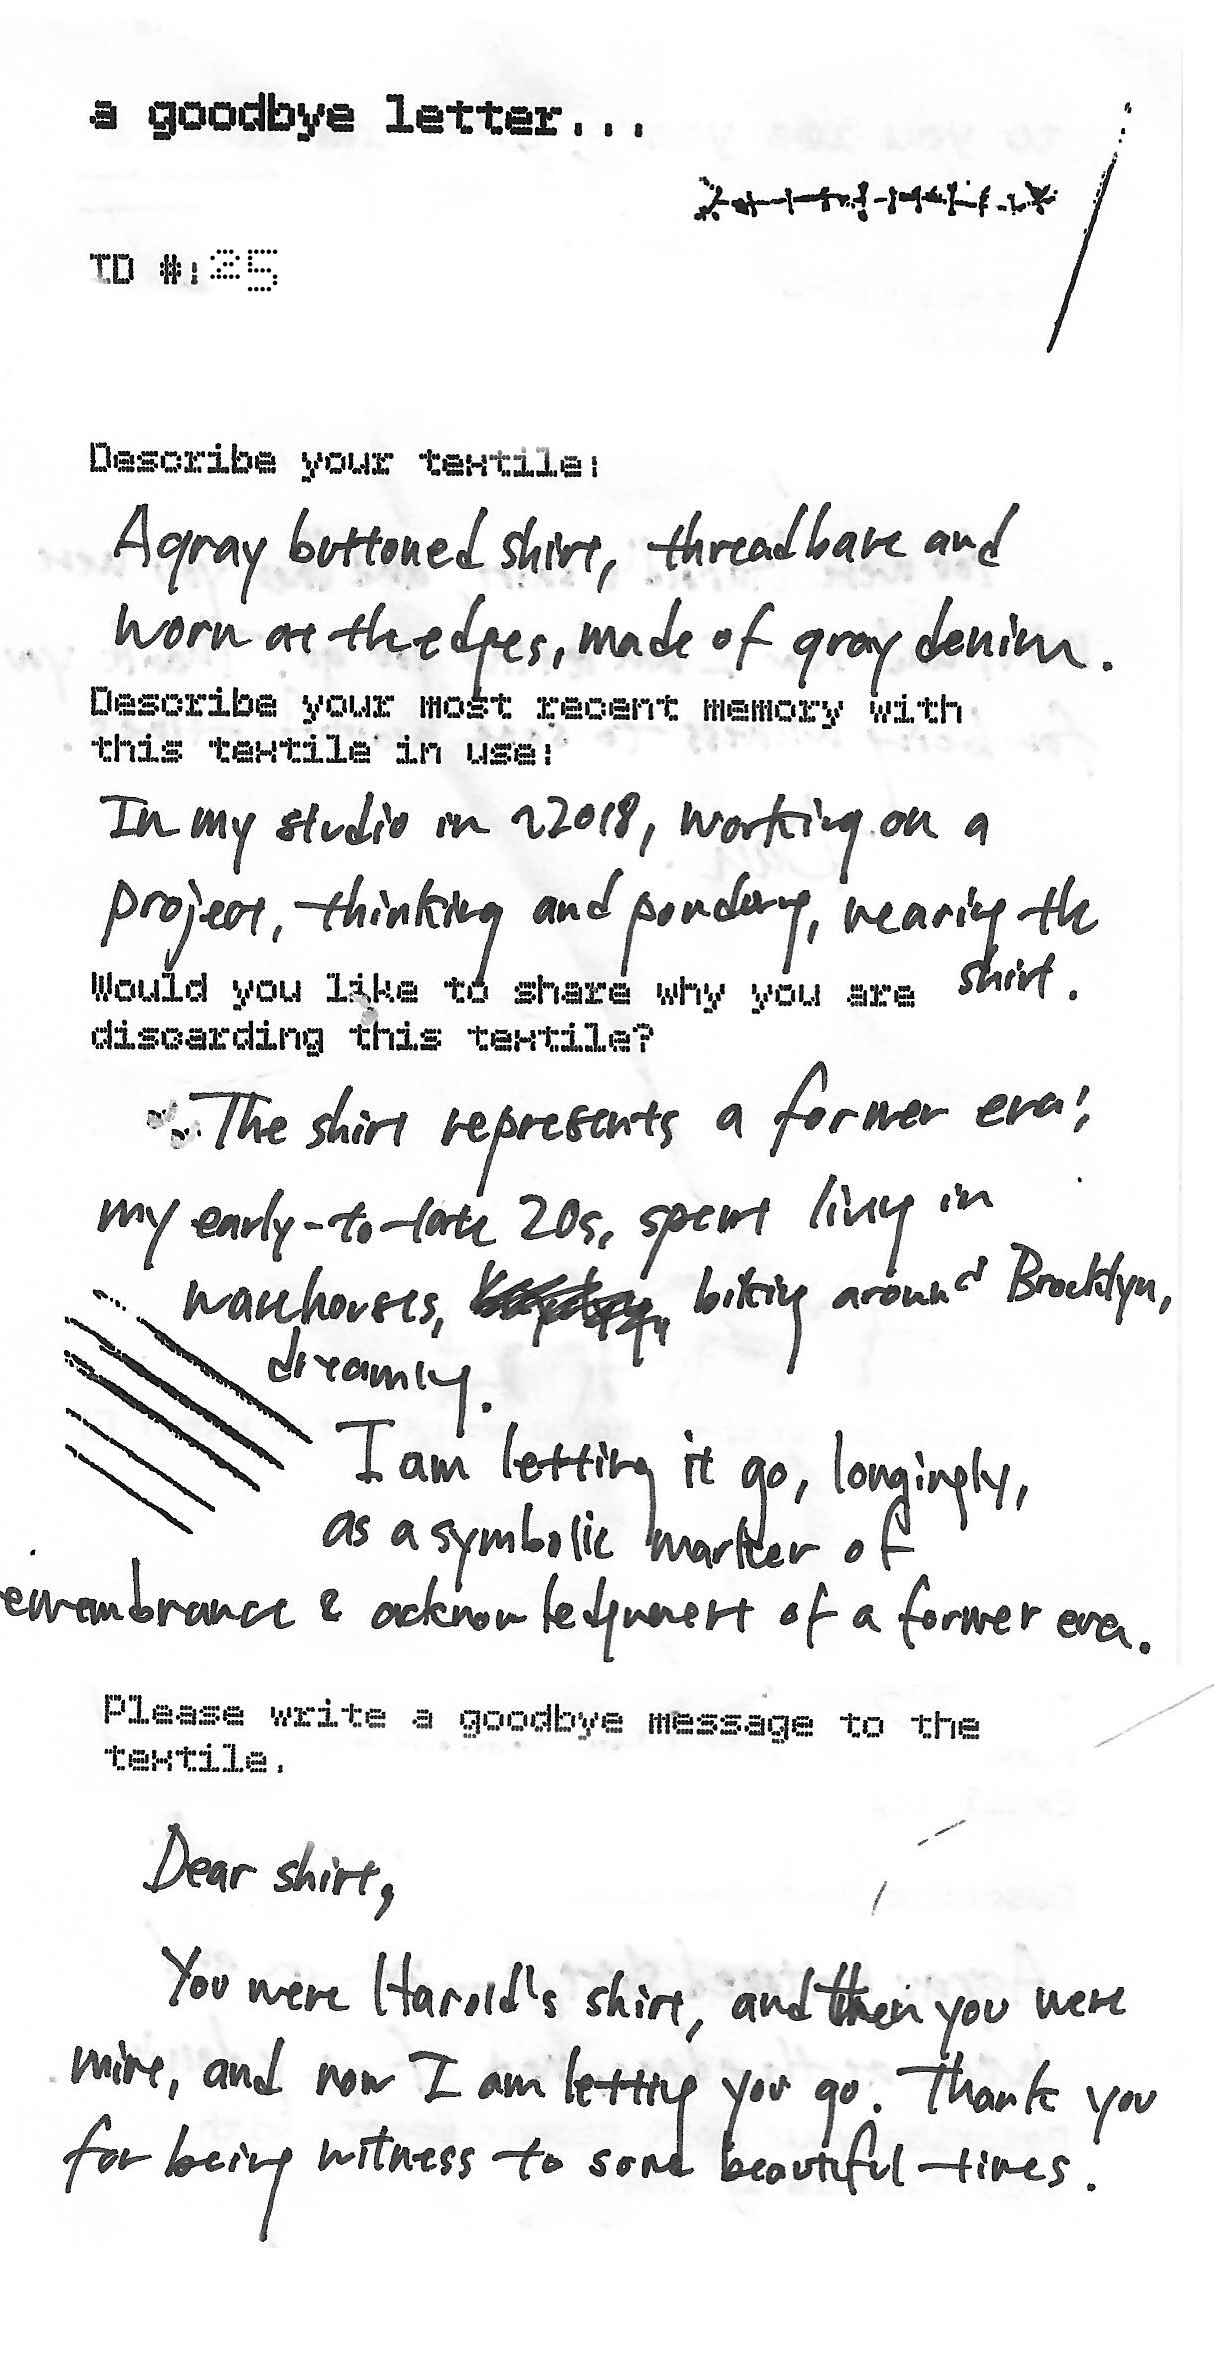 a goodbye letter...
ID #:25
Describe your textile:
A gray buttoned shirt, threadbare and
worn at the edges, made of gray denim.
Describe your most recent memory with
this textile in use:
In my studio in ~2018, working on a
project, thinking and pondering, wearing the
shirt.
Would you like to share why you are
discarding this textile?
The shirt represents a former era;
my early-to-late 20s, spent living in
warehouses, biking around Brooklyn,
dreaming.
I am letting it go, longingly,
as a symbolic marker of
remembrance & acknowledgment of a former era.
Please write a goodbye message to the
textile.
Dear shirt,
You were Harold's shirt, and then you were
mine, and now I am letting you go. Thank you
for being witness to some beautiful times.